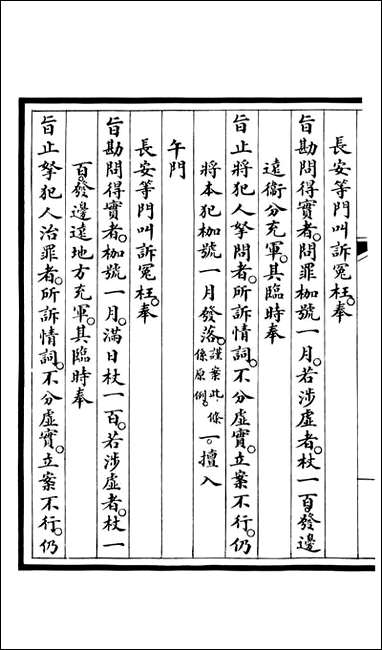 長安等門叫訴冤枉。奉
旨勘問得實者。問罪枷號一月。若涉虛者。杖一百。發邊
遠衞分充軍。其臨時奉
旨止將犯人拏問者。所訴情詞。不分虛實。立案不行。仍
將本犯枷號一月發落。謹案此條係原例。一。擅入
午門
長安等門叫訴冤枉。奉
旨勘問得實者。枷號一月。滿日杖一百。若涉虛者。杖一
百。發邊遠地方充軍。其臨時奉
旨止拏犯人治罪者。所訴情詞。不分虛實。立案不行。仍